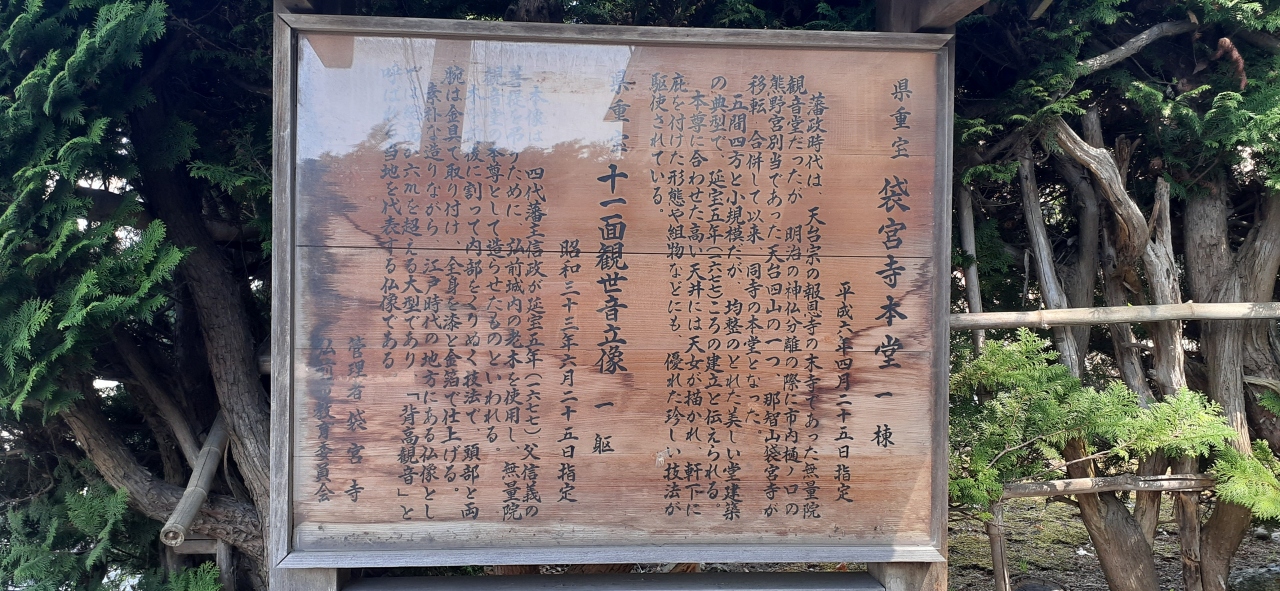 県重宝 袋宮寺本堂 一棟
平成六年四月二十五日指定
藩政時代は 天台宗の報恩寺の末寺であった無量院
観音堂だったが 明治の神仏分離の際に市内樋ノ口の
熊野宮別当であった天台四山の一つ 那智山袋宮寺が
移転 合併して以来 同寺の本堂となった
五間四方と小規模だが 均整のとれた美しい堂建築
の典型で、延宝五年(一六七七)ころの建立と伝えられる。
本尊に合わせた高い天井には天女が描かれ、軒下に
庇を付けた形態や組物などにも、優れた珍しい技法が
駆使されている。
県重宝 十一面観世音立像 一躯
昭和三十三年六月二十五日指定
本像は 四代藩主信政が延宝五年(一六七七)父信義の
ために 弘前城内の老木を使用し、無量院
本尊として造らせたものといわれる。
後に割って内部をくりぬく技法で、頭部と両
腕は金具で取り付け、全身を漆と金箔で仕上げる。
素朴な造りながら、江戸時代の地方にある仏像とし
六mを超える大型であり 「背高観音」と
当地を代表する仏像である
管理者 袋宮寺
弘前市教育委員会